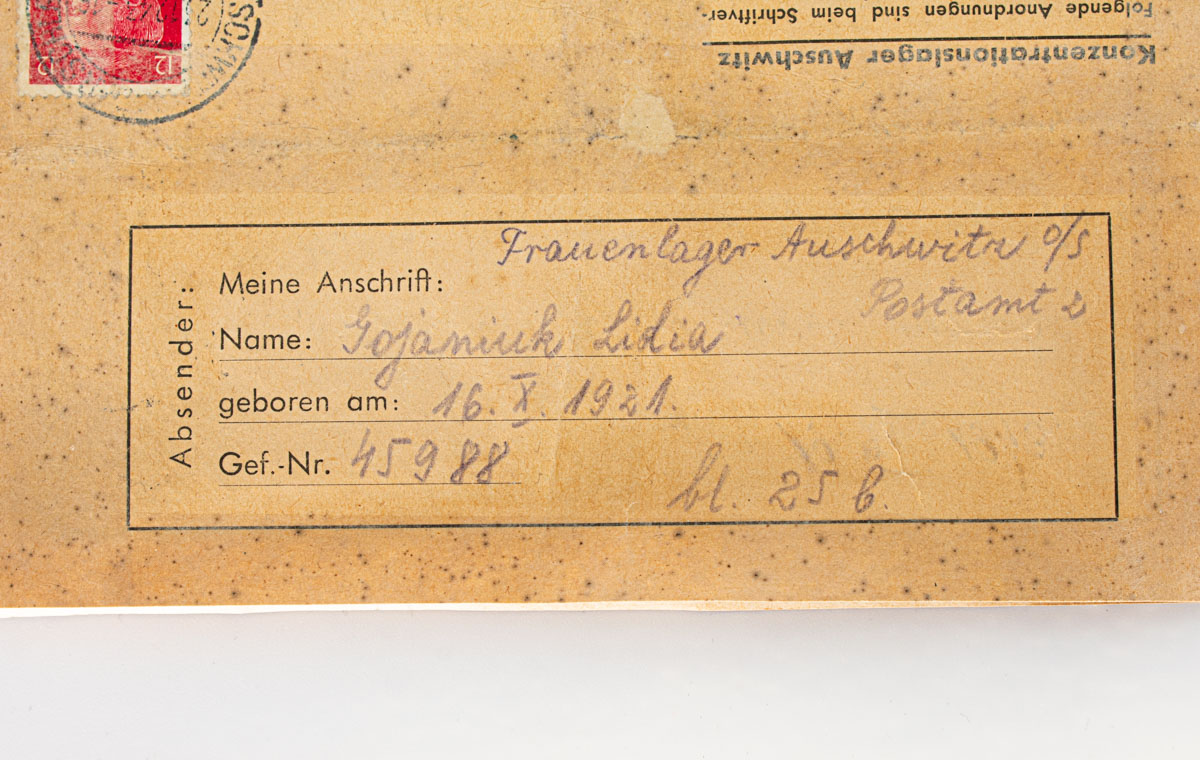 Folgende Anordnungen sind beim Schriftver-
Konzentrationslager Auschwitz
12 12
Absender:
Meine Anschrift: Frauenlager Auschwitz O/S
Postamt 2
Name: Gojaniuk Lidia
geboren am: 16. X. 1921.
Gef.-Nr. 45988
bl. 25 b.